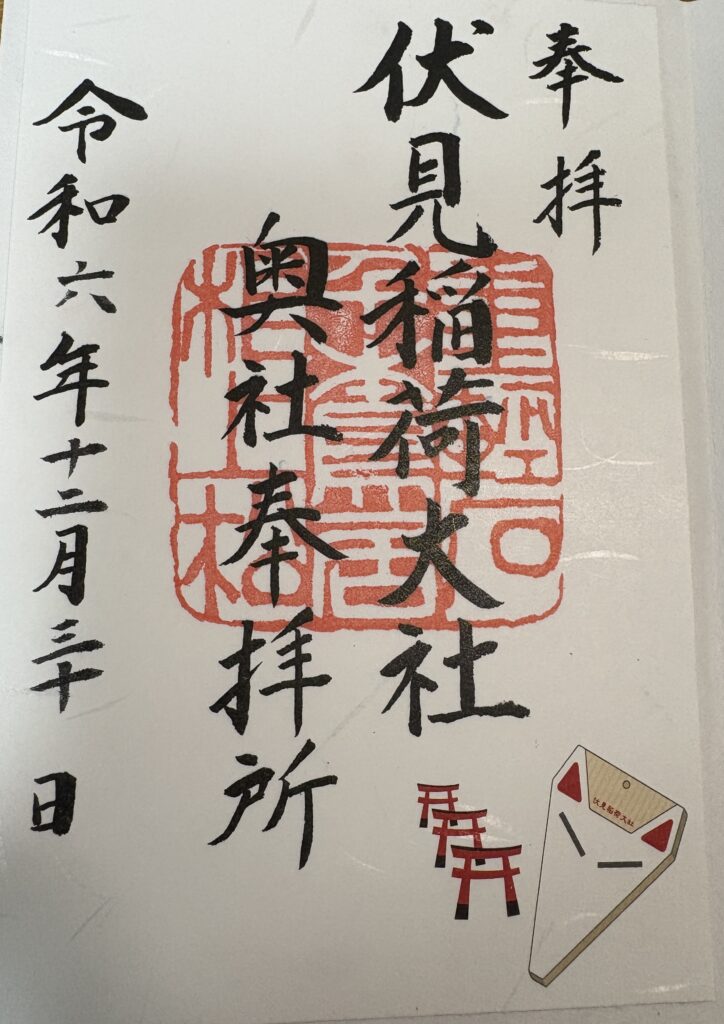 奉拝
伏見稲荷大社
奥社奉拝所
令和六年十二月三十日
伏見稲荷大社